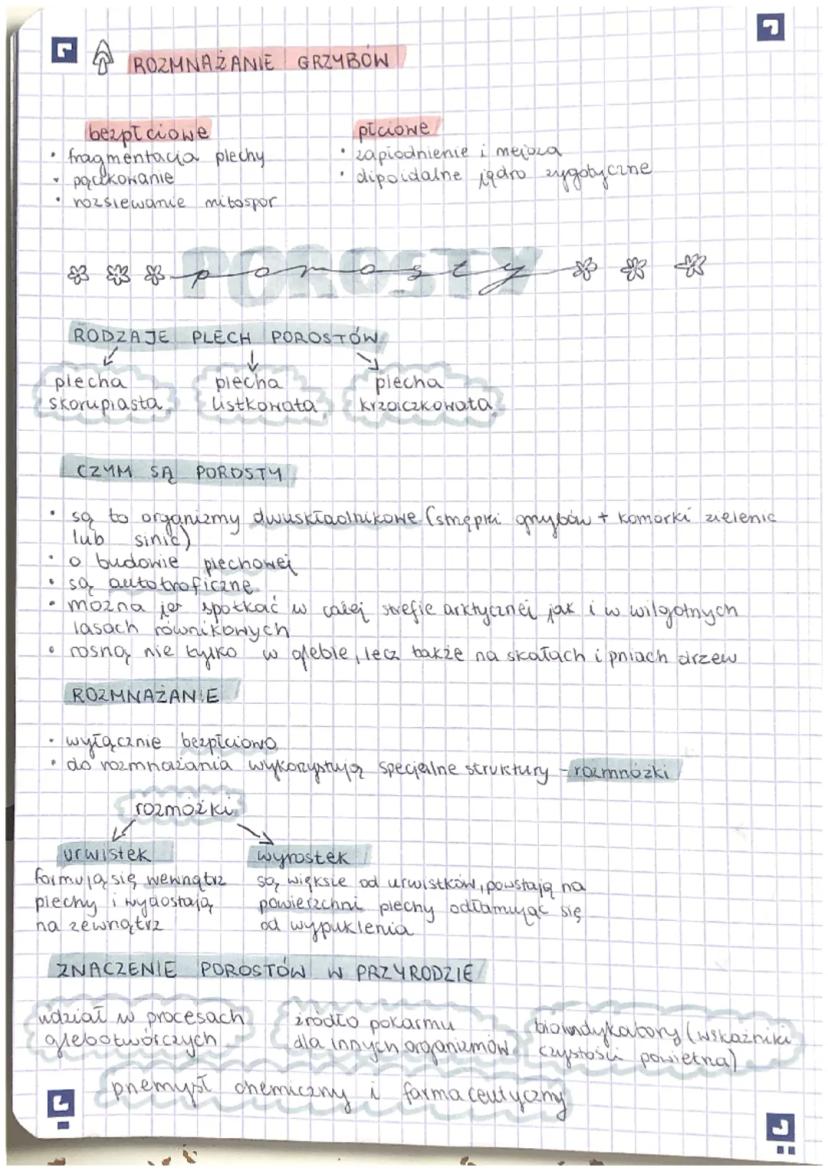 ROZMNAŻANIE GRZYBÓW
bezpłciowe
• fragmentacja plechy
• pączkowanie
• rozsiewanie mitospor
płciowe
• zapłodnienie i mejoza
• diploidalne jądro zygotyczne
POROSTY
porosty
RODZAJE PLECH POROSTÓW
plecha
skorupiasta
plecha
listkowata
plecha
krzaczkowata
CZYM SĄ POROSTY
• są to organizmy dwuskładnikowe (strzępki grzybów + komórki zielenic
lub sinic)
• o budowie plechowej
• są autotroficzne
• można je spotkać w całej strefie arktycznej jak i w wilgotnych
lasach równikowych
• rosną nie tylko w glebie, lecz także na skałach i pniach drzew
ROZMNAŻANIE
• wyłącznie bezpłciowo
• do rozmnażania wykorzystują specjalne struktury - rozmnóżki
rozmóżki
urwistek
formują się wewnątrz
plechy i wydostają
na zewnątrz
wyrostek
są większe od urwistków, powstają na
powierzchni plechy odłamując się
od wypuklenia
ZNACZENIE POROSTÓW W PRZYRODZIE
udział w procesach
glebotwórczych
źródło pokarmu
dla innych organizmów
bioindykatory (wskaźniki
czystości powietrza)
przemysł chemiczny i farmaceutyczny